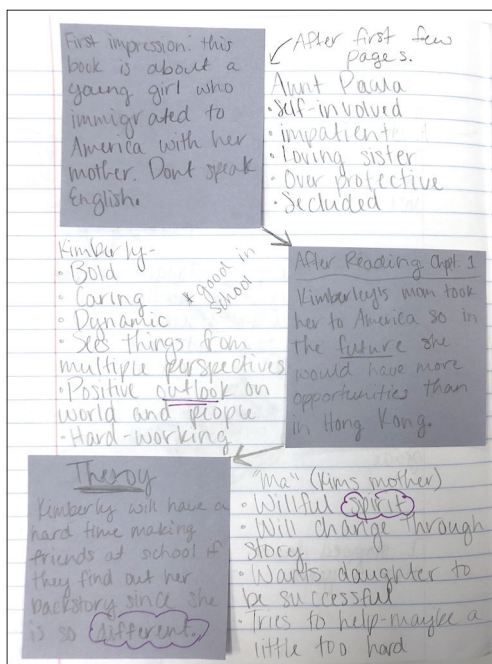 First impression: this
book is about a
young girl who
immigrated to
America with her
mother. Dont speak
English.
After first few
pages.
Aunt Paula
·Self-involved
·impatient
·Loving sister
·Over protective
·Secluded
Kimberly-
·Bold
·Caring
·Dynamic
·Sees things from
multiple perspectives
·Positive outlook on
world and people
·Hard-working
*good in
school
After Reading Chpt. 1
Kimberley's mom took
her to America so in
the future she
would have more
opportunities than
in Hong Kong.
Theroy
Kimberly will have a
hard time making
friends at school if
they find out her
backstory since she
is so different.
"Ma" (Kims mother)
·Willful spirit
·Will change through
story
·Wants daughter to
be successful
·Tries to help-maybe a
little too hard